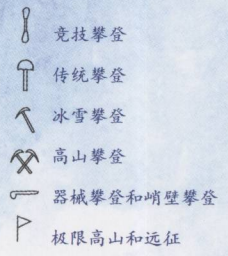 竞技攀登
传统攀登
冰雪攀登
高山攀登
器械攀登和峭壁攀登
极限高山和远征